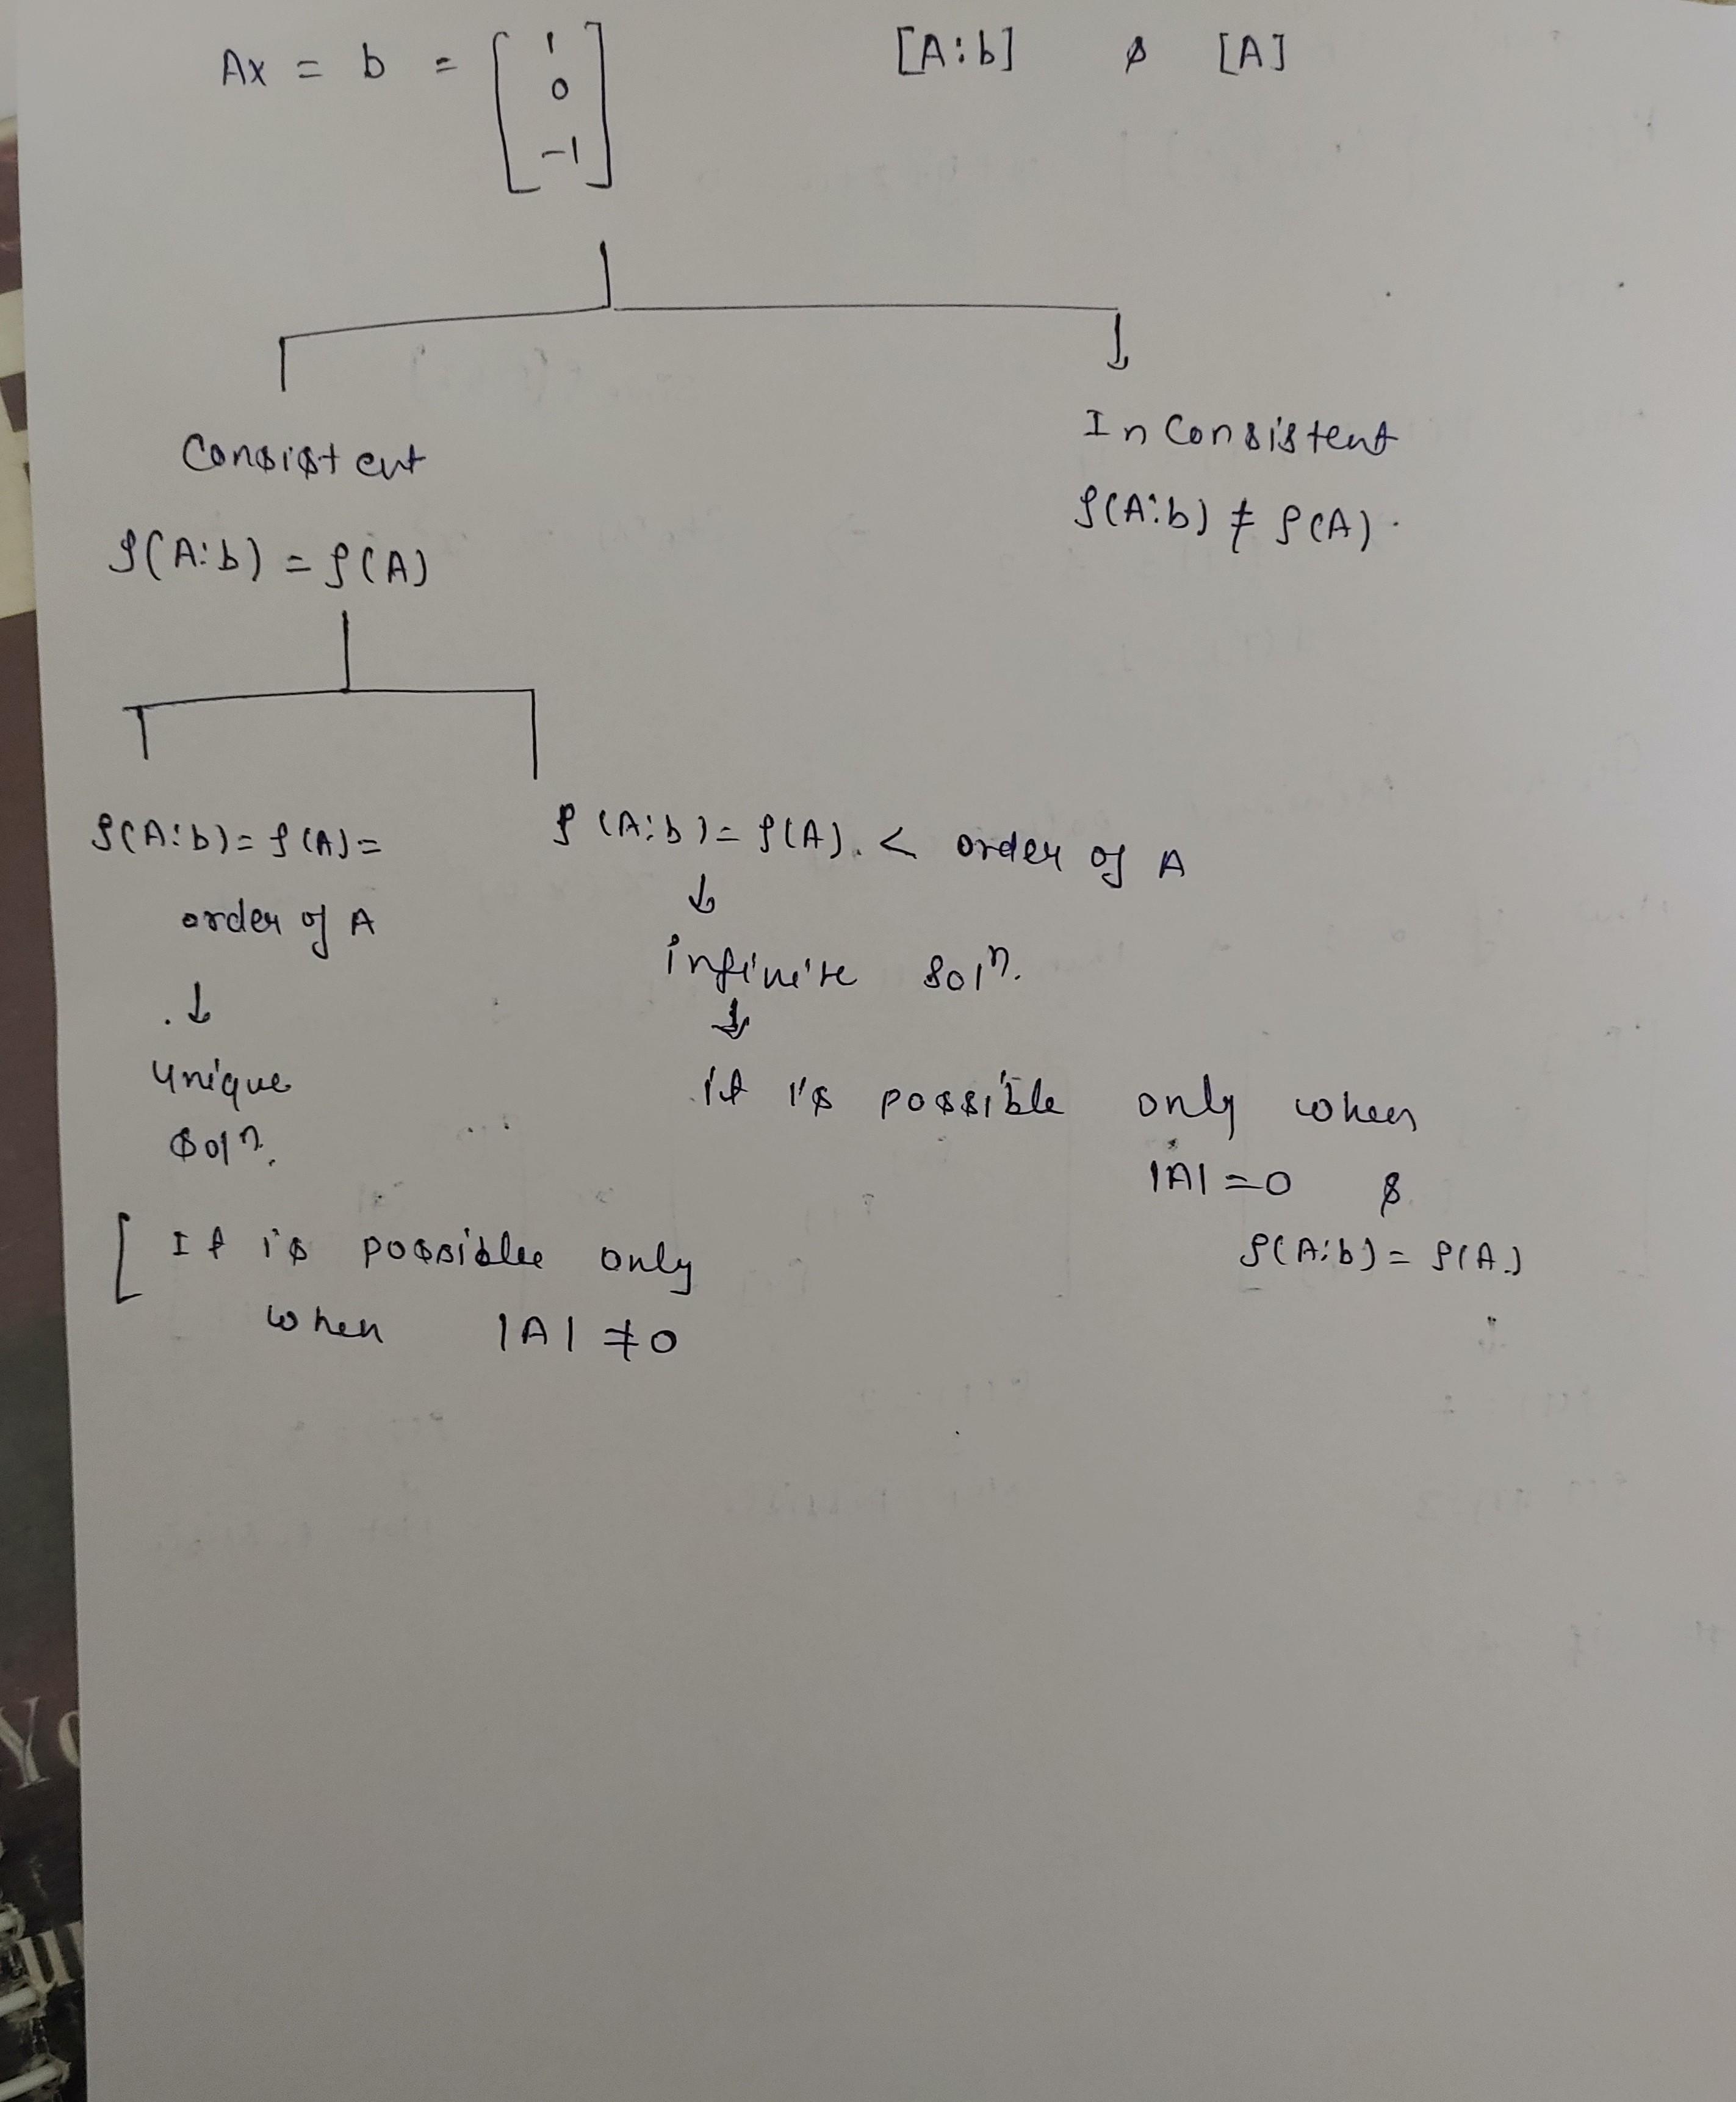 Ax = b = [1 0 -1] [A:b] & [A]
Consistent
InConsistent
ρ(A:b) = ρ(A)
ρ(A:b) ≠ ρ(A).
ρ(A:b) = ρ(A) =
order of A
↓
unique
solⁿ.
[ It is possible only
when |A| ≠ 0
ρ(A:b) = ρ(A) < order of A
↓
infinite solⁿ.
↓
it is possible only when
|A| = 0 &
ρ(A:b) = ρ(A)
Yo